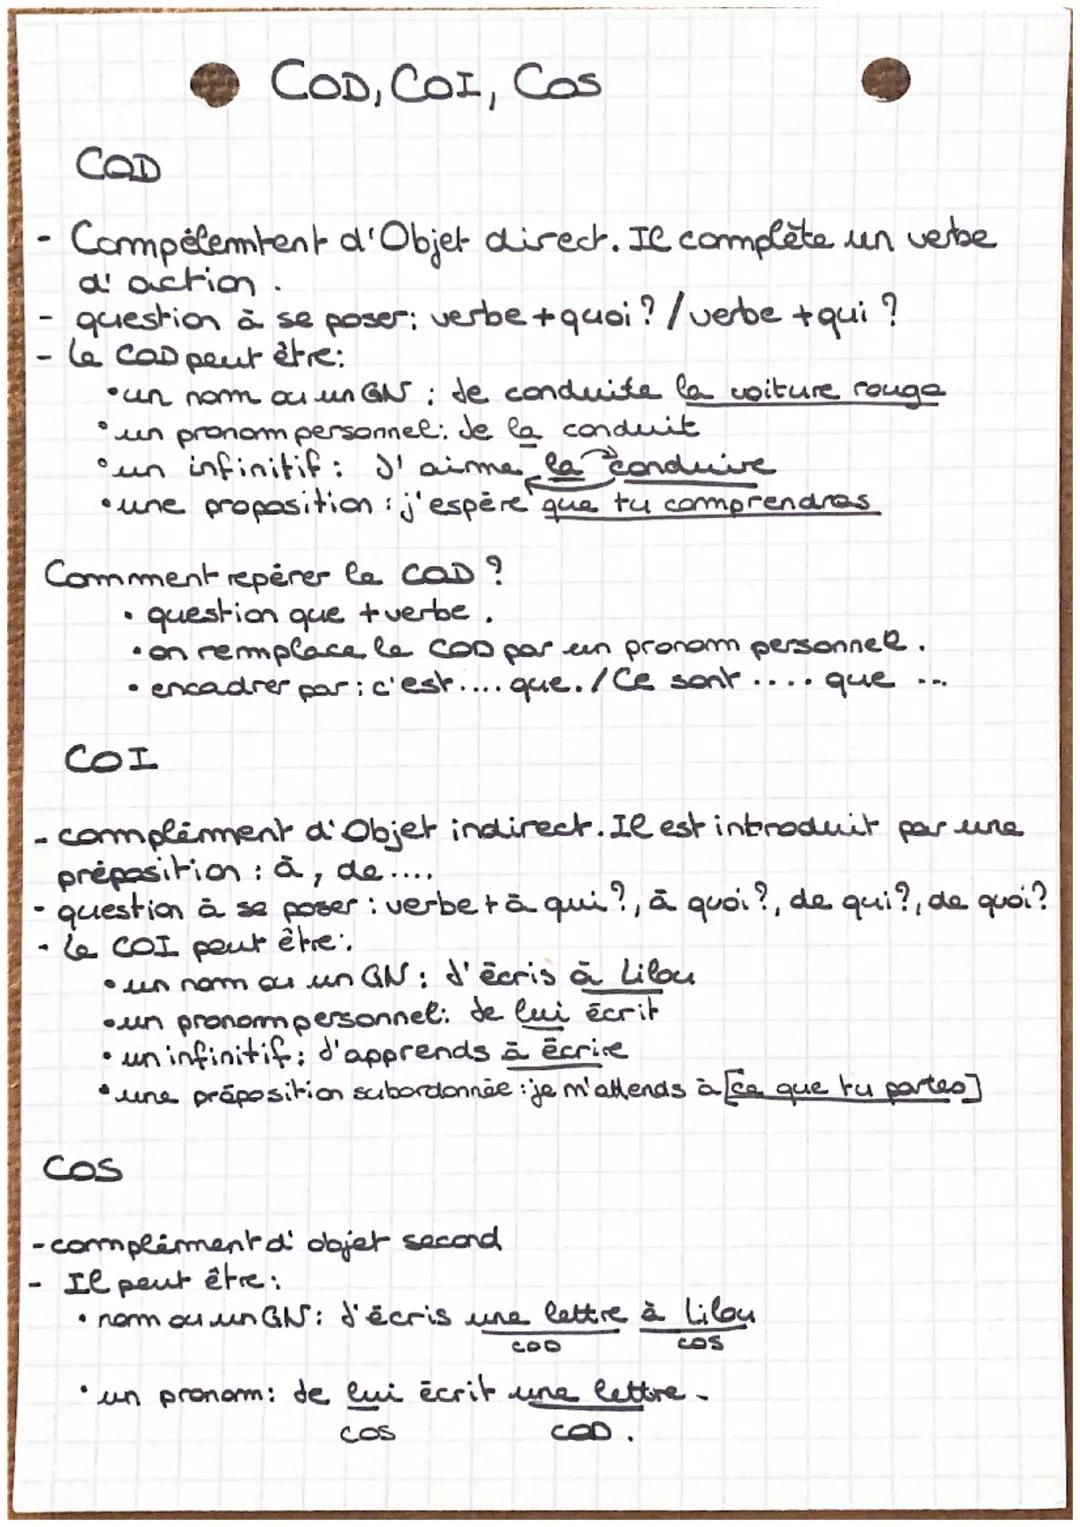 COD, COI, COS
COD
- Compélemntent d'Objet direct. Il complète un verbe
d'action.
- question à se poser: verbe + quoi ? / verbe + qui ?
- le COD peut être:
• un nom ou un GN : Je conduite la voiture rouge
• un pronom personnel: Je la conduit
• un infinitif : J'aime la conduire
• une proposition : j'espère que tu comprendras
Comment repérer le COD ?
• question que + verbe.
• on remplace le COD par un pronom personnel.
• encadrer par : c'est.... que. / Ce sont .... que ...
COI
- complément d'Objet indirect. Il est introduit par une
préposition : à, de....
- question à se poser : verbe + à qui ?, à quoi ?, de qui ?, de quoi?
- le COI peut être:
• un nom ou un GN : J'écris à Lilou
• un pronom personnel: Je lui écrit
• un infinitif : J'apprends à écrire
• une préposition subordonnée : je m'attends à [ce que tu partes]
COS
- complément d'objet second
- Il peut être :
• nom ou un GN : J'écris une lettre à Lilou
COD COS
• un pronom: Je lui écrit une lettre.
COS COD.